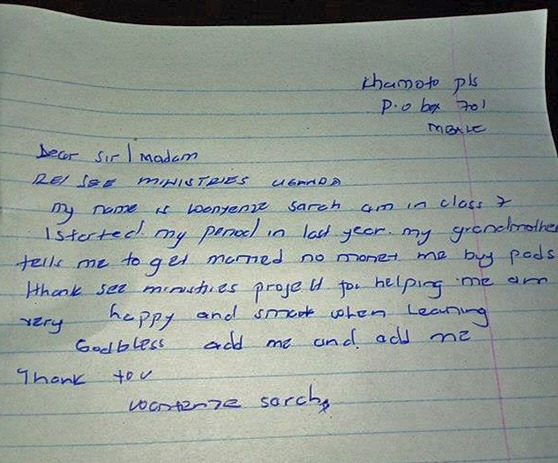 Khamoto p/s
P.o box 701
mBALE
Dear Sir / Madam
RE/ SEE MINISTRIES UGANDA
my name is wanyenze sarah am in class 7
I started my period in last year. my grandmother
tells me to get married no money me buy pads
I thank see ministries projett for helping me am
very happy and smart when Leaning
Godbless add me and add me
Thank you
wanyenze sarah